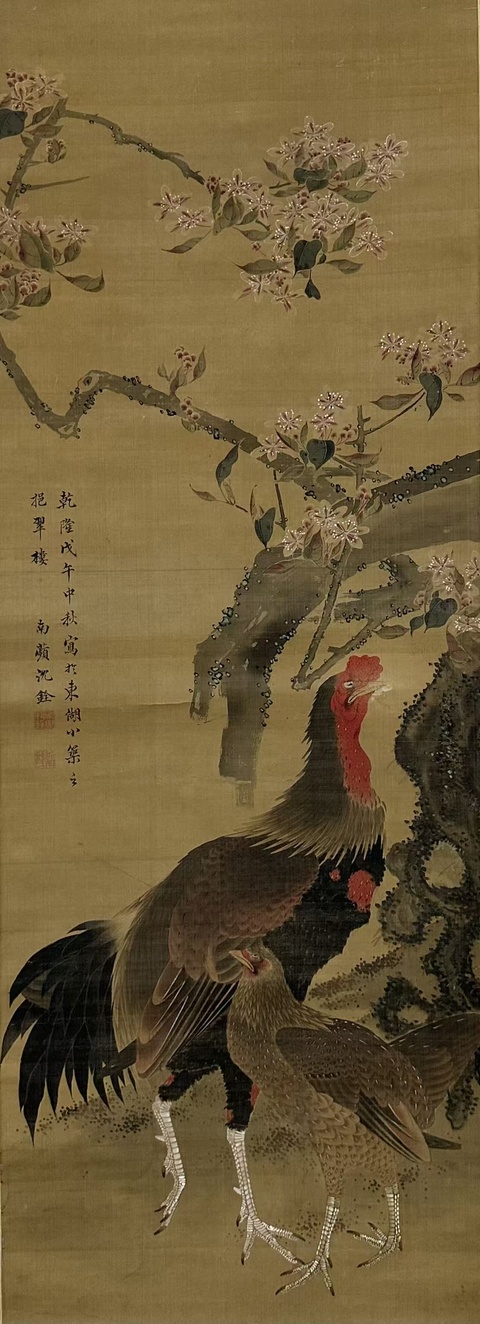 乾隆戊午中秋寫於東湖小築之
挹翠樓　南蘋沈銓